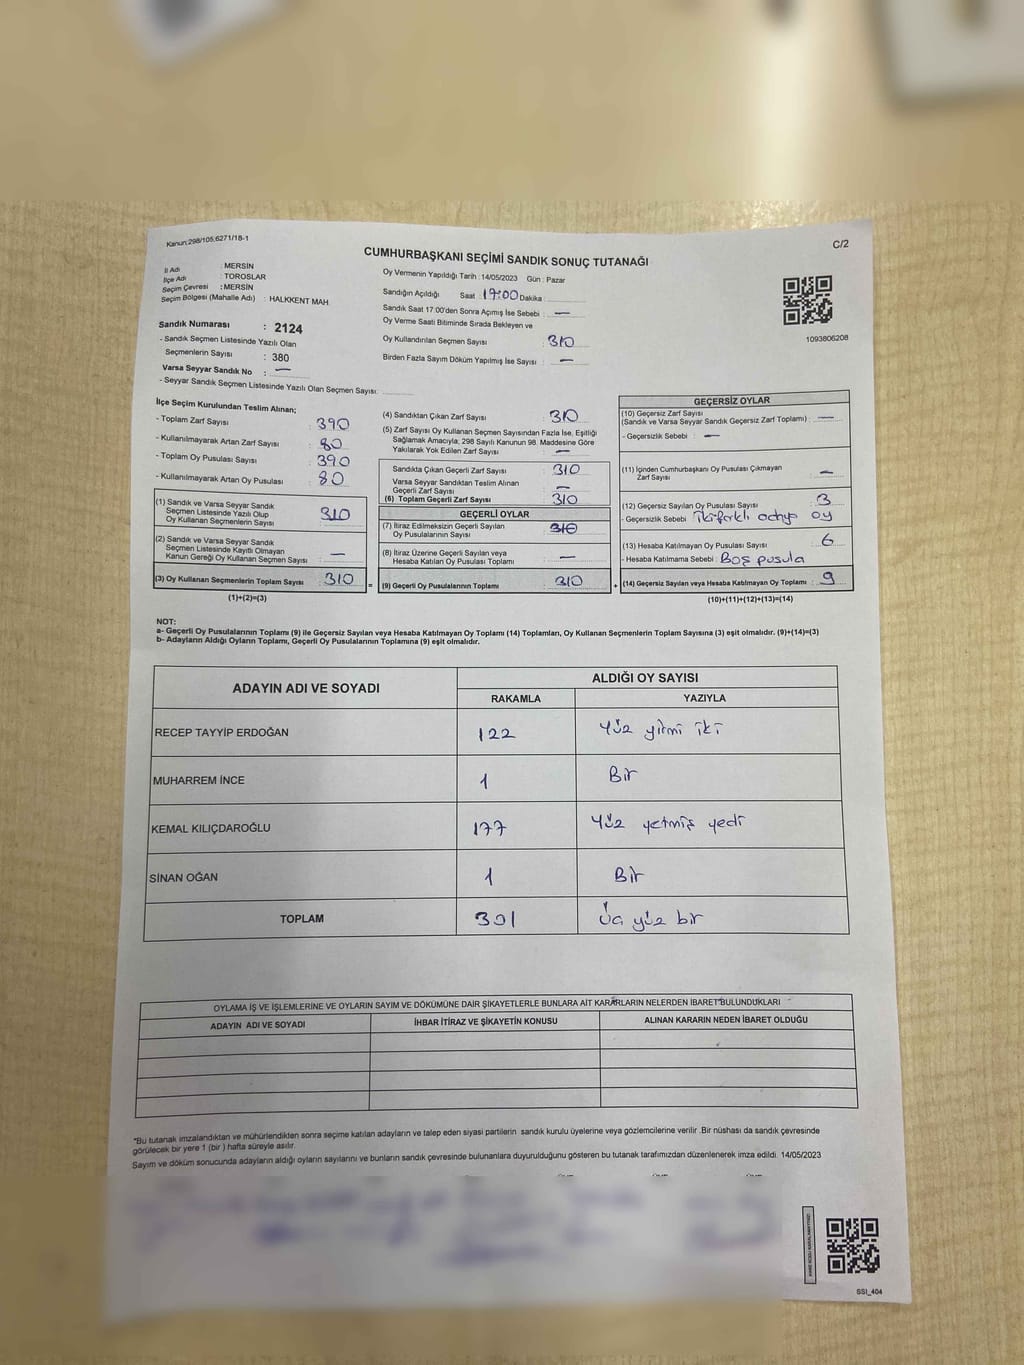 Kanun:298/105,6271/18-1
C/2
CUMHURBAŞKANI SEÇİMİ SANDIK SONUÇ TUTANAĞI
İl Adı : MERSİN
İlçe Adı : TOROSLAR
Seçim Çevresi : MERSİN
Seçim Bölgesi (Mahalle Adı) : HALKKENT MAH.
Sandık Numarası : 2124
- Sandık Seçmen Listesinde Yazılı Olan
Seçmenlerin Sayısı : 380
Varsa Seyyar Sandık No : —
- Seyyar Sandık Seçmen Listesinde Yazılı Olan Seçmen Sayısı:
Oy Vermenin Yapıldığı Tarih : 14/05/2023 Gün : Pazar
Sandığın Açıldığı Saat : 17:00 Dakika :
Sandık Saat 17:00'den Sonra Açımış İse Sebebi : —
Oy Verme Saati Bitiminde Sırada Bekleyen ve
Oy Kullandırılan Seçmen Sayısı : 310
Birden Fazla Sayım Döküm Yapılmış İse Sayısı : —
1093806208
İlçe Seçim Kurulundan Teslim Alınan;
- Toplam Zarf Sayısı : 390
- Kullanılmayarak Artan Zarf Sayısı : 80
- Toplam Oy Pusulası Sayısı : 390
- Kullanılmayarak Artan Oy Pusulası : 80
(1) Sandık ve Varsa Seyyar Sandık
Seçmen Listesinde Yazılı Olup
Oy Kullanan Seçmenlerin Sayısı : 310
(2) Sandık ve Varsa Seyyar Sandık
Seçmen Listesinde Kayıtlı Olmayan
Kanun Gereği Oy Kullanan Seçmen Sayısı : —
(3) Oy Kullanan Seçmenlerin Toplam Sayısı : 310
(1)+(2)=(3)
(4) Sandıktan Çıkan Zarf Sayısı : 310
(5) Zarf Sayısı Oy Kullanan Seçmen Sayısından Fazla İse, Eşitliği
Sağlamak Amacıyla, 298 Sayılı Kanunun 98. Maddesine Göre
Yakılarak Yok Edilen Zarf Sayısı : —
Sandıkta Çıkan Geçerli Zarf Sayısı : 310
Varsa Seyyar Sandıktan Teslim Alınan
Geçerli Zarf Sayısı : —
(6) Toplam Geçerli Zarf Sayısı : 310
GEÇERLİ OYLAR
(7) İtiraz Edilmeksizin Geçerli Sayılan
Oy Pusulasının Sayısı : 310
(8) İtiraz Üzerine Geçerli Sayılan veya
Hesaba Katılan Oy Pusulası Toplamı : —
= (9) Geçerli Oy Pusulalarının Toplamı : 310
GEÇERSİZ OYLAR
(10) Geçersiz Zarf Sayısı
(Sandık ve Varsa Seyyar Sandık Geçersiz Zarf Toplamı) : —
- Geçersizlik Sebebi : —
(11) İçinden Cumhurbaşkanı Oy Pusulası Çıkmayan
Zarf Sayısı : —
(12) Geçersiz Sayılan Oy Pusulası Sayısı : 3
- Geçersizlik Sebebi : iki farklı oy
(13) Hesaba Katılmayan Oy Pusulası Sayısı : 6
- Hesaba Katılmama Sebebi : Boş pusula
+ (14) Geçersiz Sayılan veya Hesaba Katılmayan Oy Toplamı : 9
(10)+(11)+(12)+(13)=(14)
NOT:
a- Geçerli Oy Pusulalarının Toplamı (9) ile Geçersiz Sayılan veya Hesaba Katılmayan Oy Toplamı (14) Toplamları, Oy Kullanan Seçmenlerin Toplam Sayısına (3) eşit olmalıdır. (9)+(14)=(3)
b- Adayların Aldığı Oyların Toplamı, Geçerli Oy Pusulalarının Toplamına (9) eşit olmalıdır.
ADAYIN ADI VE SOYADI
ALDIĞI OY SAYISI
RAKAMLA YAZIYLA
RECEP TAYYİP ERDOĞAN 122 Yüz yirmi iki
MUHARREM İNCE 1 Bir
KEMAL KILIÇDAROĞLU 177 Yüz yetmiş yedi
SİNAN OĞAN 1 Bir
TOPLAM 301 Üç yüz bir
OYLAMA İŞ VE İŞLEMLERİNE VE OYLARIN SAYIM VE DÖKÜMÜNE DAİR ŞİKAYETLERLE BUNLARA AİT KARARLARIN NELERDEN İBARET BULUNDUKLARI
ADAYIN ADI VE SOYADI İHBAR İTİRAZ VE ŞİKAYETİN KONUSU ALINAN KARARIN NEDEN İBARET OLDUĞU
*Bu tutanak imzalandıktan ve mühürlendikten sonra seçime katılan adayların ve talep eden siyasi partilerin sandık kurulu üyelerine veya gözlemcilerine verilir .Bir nüshası da sandık çevresinde
görülecek bir yere 1 (bir ) hafta süreyle asılır.
Sayım ve döküm sonucunda adayların aldığı oyların sayılarını ve bunların sandık çevresinde bulunanlara duyurulduğunu gösteren bu tutanak tarafımızdan düzenlenerek imza edildi. 14/05/2023
SSİ_404